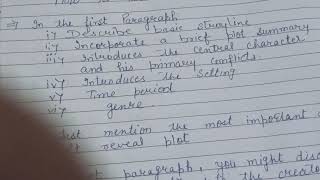 ⇒ In the first Paragraph
i) Describe basic stroyline
ii) Incorporate a brief plot summary
iii) Introduces the central character
and his primary conflicts.
iv) Introduces the setting
v) Time period
vi) genre
mention the most important
reveal plot
paragraph, you might
the